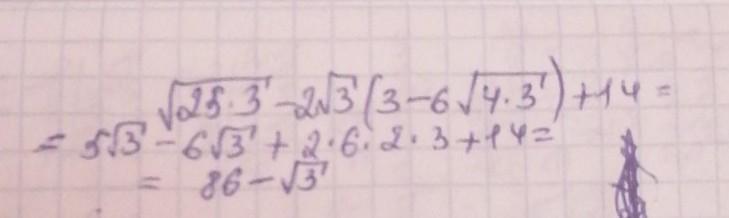 √25·3 - 2√3 (3 - 6√4·3) + 14 =
= 5√3 - 6√3 + 2·6·2·3 + 14 =
= 86 - √3